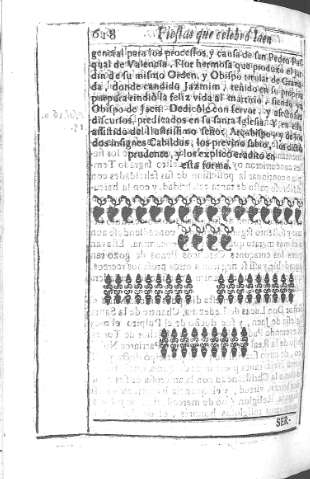 618 Fiestas que celebrò Iaen
general para los processos, y causa de san Pedro Pas
qual de Valencia, Flor hermosa que produxo el jar
din de su mismo Orden, y Obispo titular de Grana
da, donde candido Jazmim, teñido en su propria
purpura rindiò la feliz vida al martirio, siendo ya
Obispo de Jaen. Dedicòlo con fervor, y afectuosos
discursos, predicados en su santa Iglesia. Y en ella
assistido del Ilustrissimo señor Arçobispo, y de los
dos insignes Cabildos, los previno sabio, los dictò
prudente, y los explicò erudito en
esta forma.
SER-